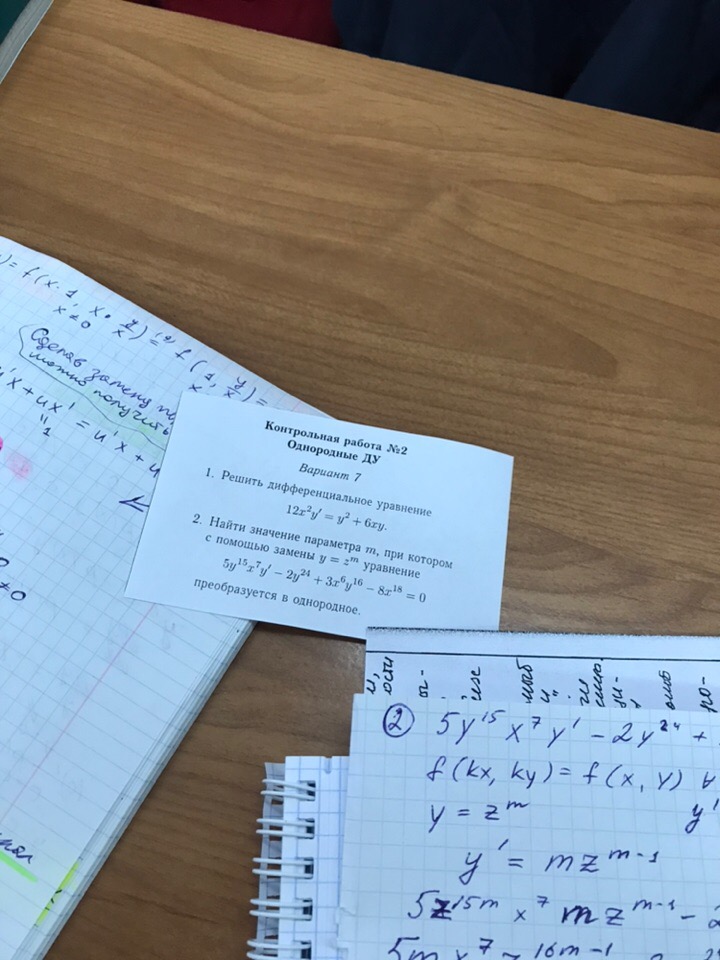 )= f(x·1, x·y/x) = f(1, y/x) =
x≠0
Сделав замену
можно получить
u'x + ux' = u'x + u
"
1
≠0
Контрольная работа №2
Однородные ДУ
Вариант 7
1. Решить дифференциальное уравнение
12x²y' = y² + 6xy.
2. Найти значение параметра m, при котором
с помощью замены y = zᵐ уравнение
5y¹⁵x⁷y' − 2y²⁴ + 3x⁶y¹⁶ − 8x¹⁸ = 0
преобразуется в однородное.
② 5y¹⁵x⁷y' − 2y²⁴ +
f(kx, ky) = f(x, y) ∀
y = zᵐ y'
y' = mzᵐ⁻¹
5z¹⁵ᵐ x⁷ mzᵐ⁻¹ − 2
5m x⁷ z¹⁶ᵐ⁻¹